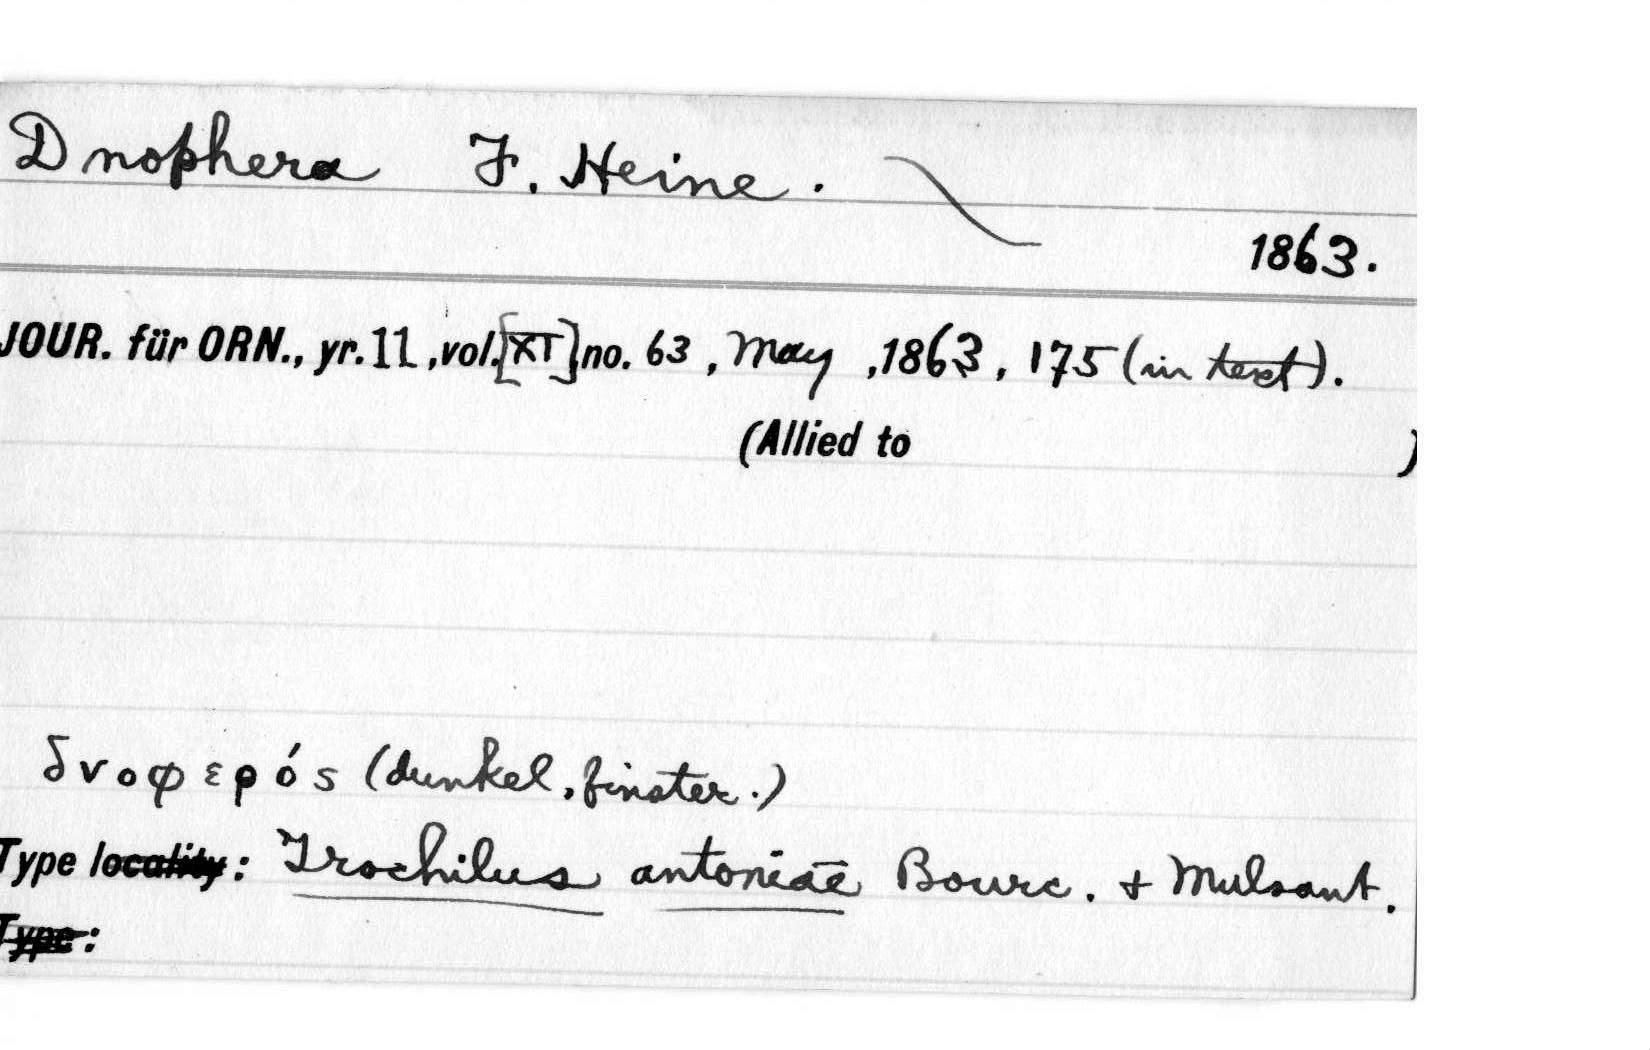 Dnophera F. Heine.
1863.
JOUR. für ORN., yr. 11, vol. [XI] no. 63, May, 1863, 175 (in text).
(Allied to )
δνοφερός (dunkel, finster.)
Type locality: Trochilus antoniae Bourc. + Mulsant.
Type: